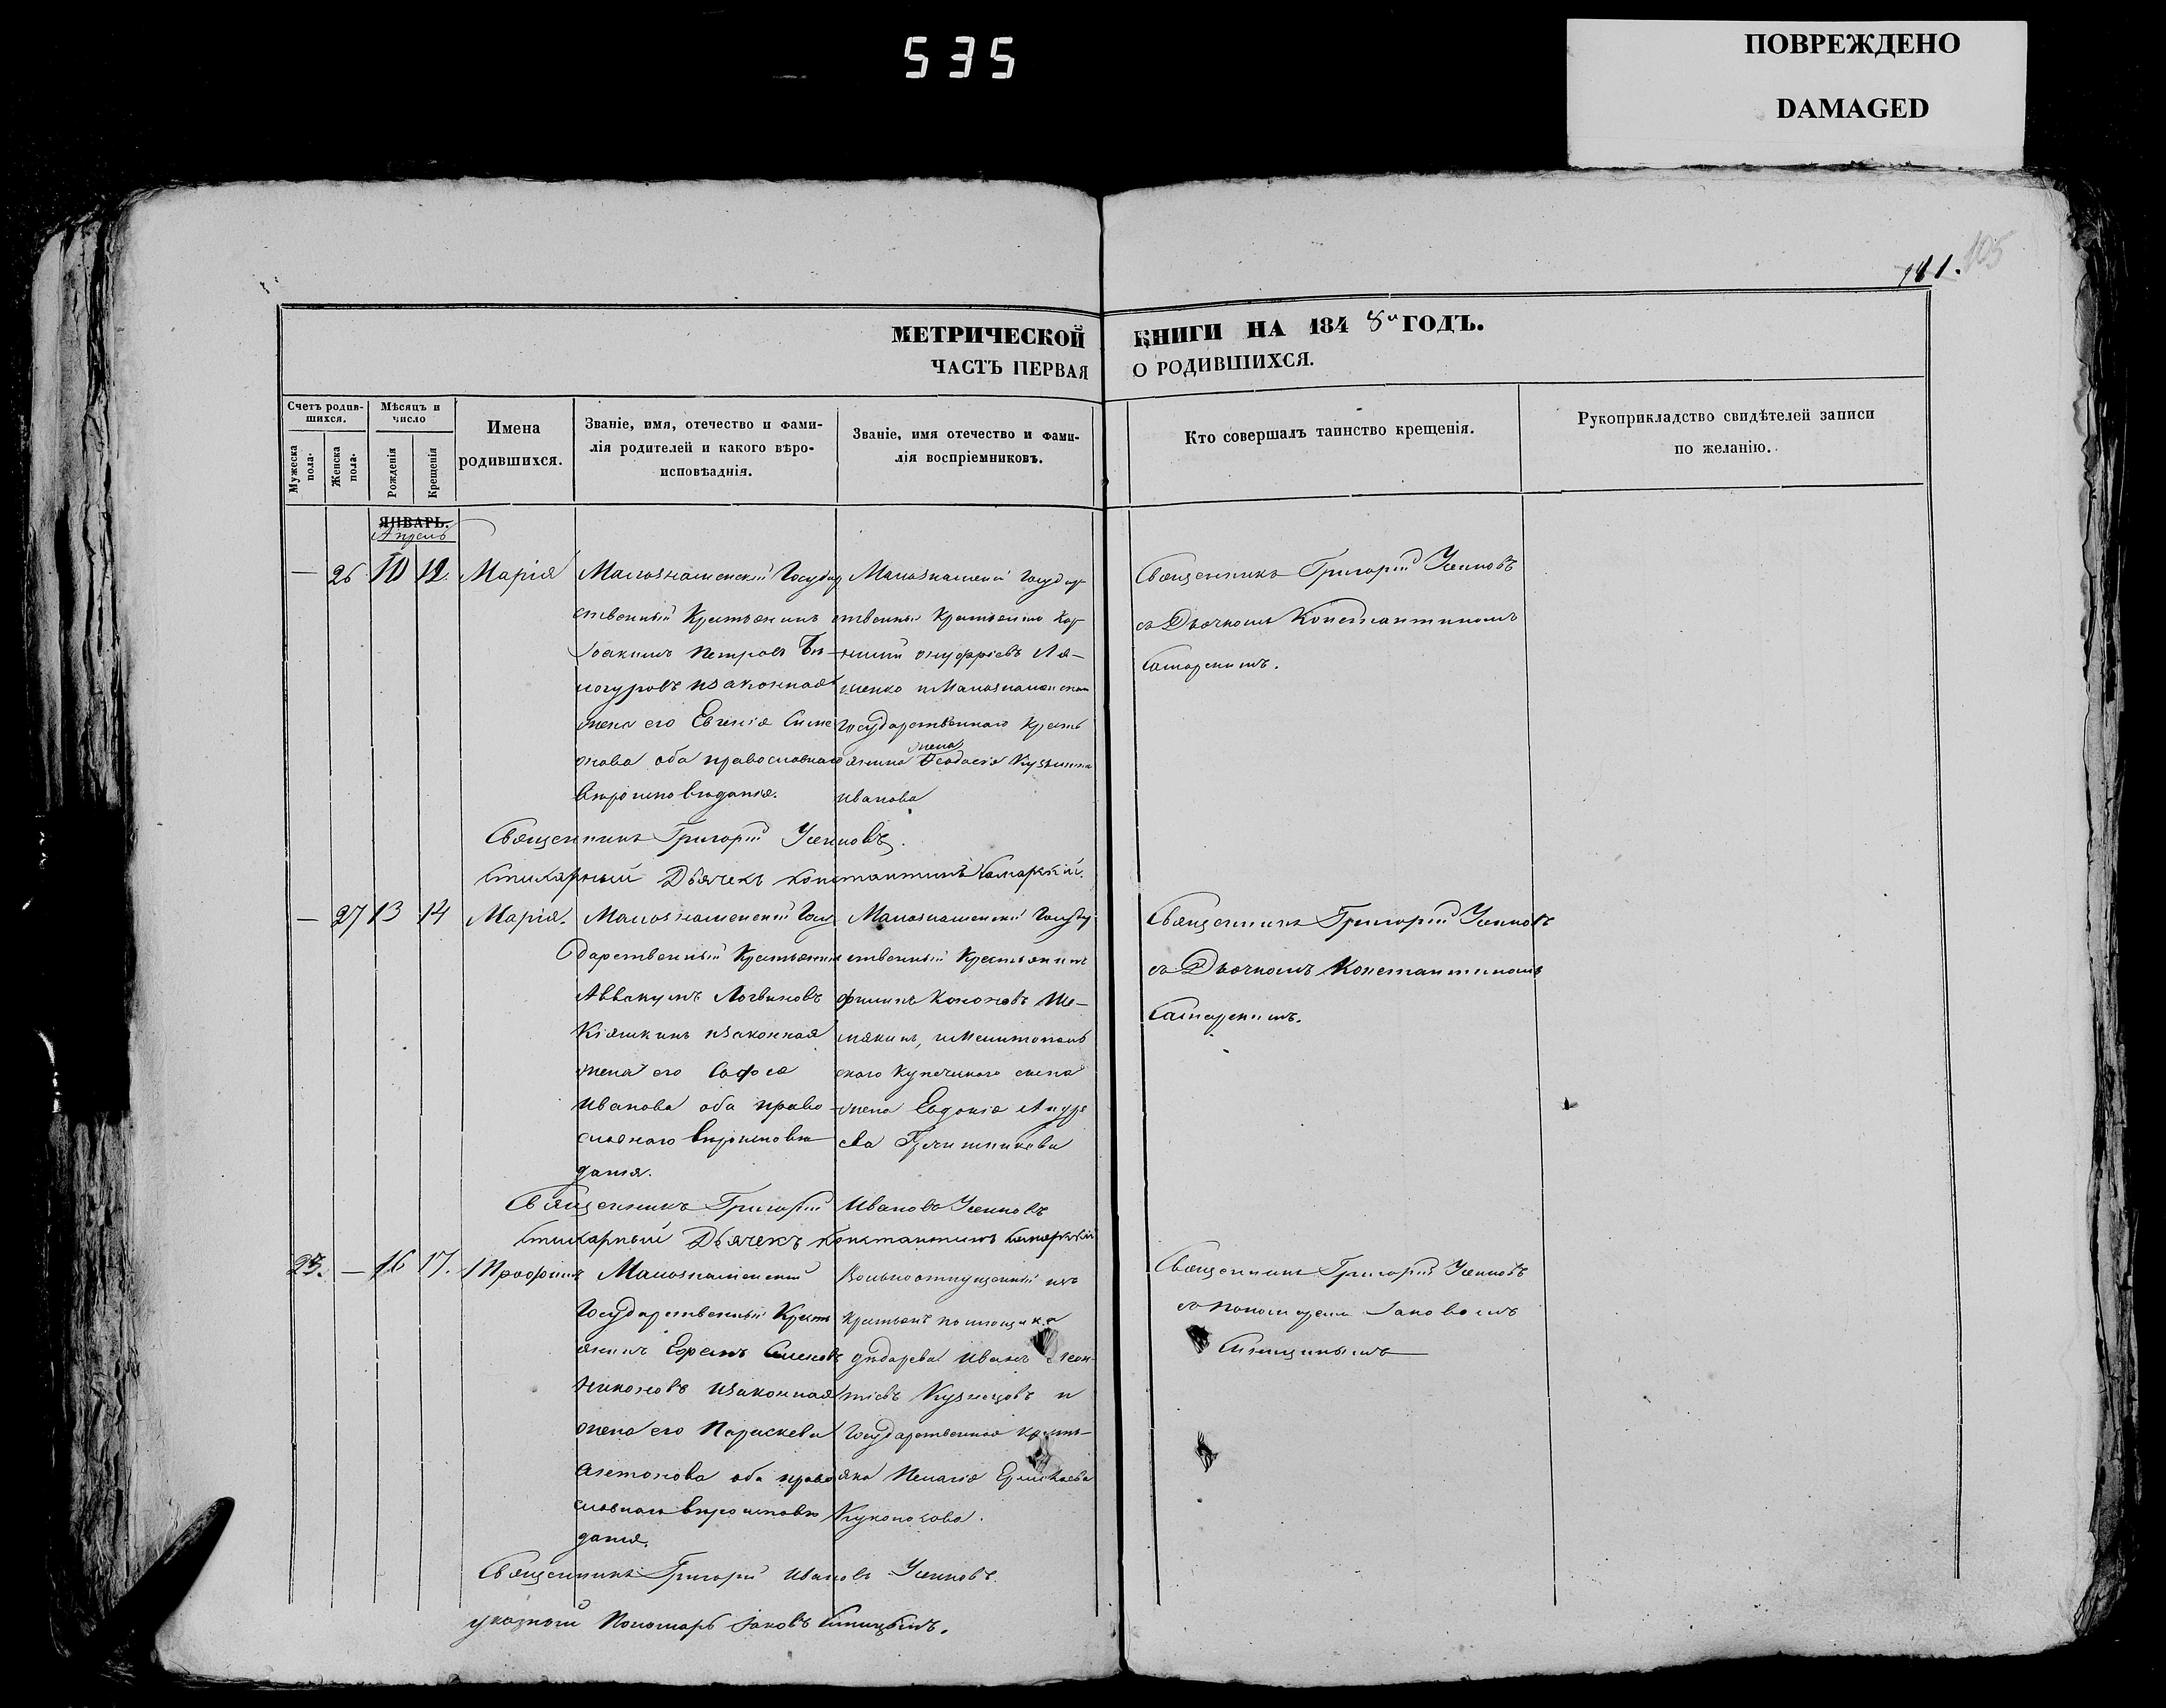 535
ПОВРЕЖДЕНО
DAMAGED
181. 105
МЕТРИЧЕСКОЙ КНИГИ НА 1848й ГОДЪ.
ЧАСТЬ ПЕРВАЯ О РОДИВШИХСЯ.
Счетъ родив-
шихся.
Мужеска
пола.
Женска
пола.
Мѣсяцъ и
число
Рожденія
Крещенія
Имена
родившихся.
Званіе, имя, отечество и фами-
лія родителей и какого вѣро-
исповѣаднія.
Званіе, имя отечество и фами-
лія воспріемниковъ.
Кто совершалъ таинство крещенія.
Рукоприкладство свидѣтелей записи
по желанію.
ЯНВАРЬ.
Апрель
— 26 10 12. Марія
Малознаменскій Государ
ственный Крестьянинъ
Іоакимъ Петровъ Бѣ-
логуровъ изаконная
жена его Евгенія Симе
онова оба православнаго
вѣроисповѣданія.
Малознаменскій Государ
ственный Крестьянинъ
Онуфріевъ Ля-
шенко и Малознаменскаго
Государственнаго Кресть
янина жена Феодосія Кузьмина
Иванова
Священникъ Григорій Усиновъ
съ Дьячкомъ Константиномъ
Самарскимъ.
Священникъ Григорій Усиновъ.
Стихарный Дьячекъ Константинъ Самарскій.
— 27 13 14 Марія.
Малознаменскій Госу
дарственный Крестьянинъ
Аввакумъ Логвиновъ
Кіяшкинъ изаконная
жена его Софія
Иванова оба право
славнаго вѣроисповѣ
данія.
Малознаменскій Государ
ственный Крестьянинъ
Филипъ Кононовъ Ше-
мякинъ, и Мелитополь
скаго Купеческаго сына
жена Евдокія Андре
ева
Священникъ Григорій Усиновъ
съ Дьячкомъ Константиномъ
Самарскимъ.
Священникъ Григорій Ивановъ Усиновъ
Стихарный Дьячекъ Константинъ Самарскій
23. — 16 17.
Малознаменскій
Государственный Кресть
янинъ Ефремъ
Никоновъ изаконная
жена его Параскева
Антонова оба право
славнаго вѣроисповѣ
данія.
Вольноотпущенный изъ
крестьянъ помещика
Иванъ Леон-
тіевъ Кузнецовъ и
Государственная Кресть-
янка Пелагія Ермолаева
Священникъ Григорій Усиновъ
съ Пономаремъ Іаковомъ
Синицынымъ
Священникъ Григорій Ивановъ Усиновъ.
указной Пономарь Іаковъ Синицынъ.